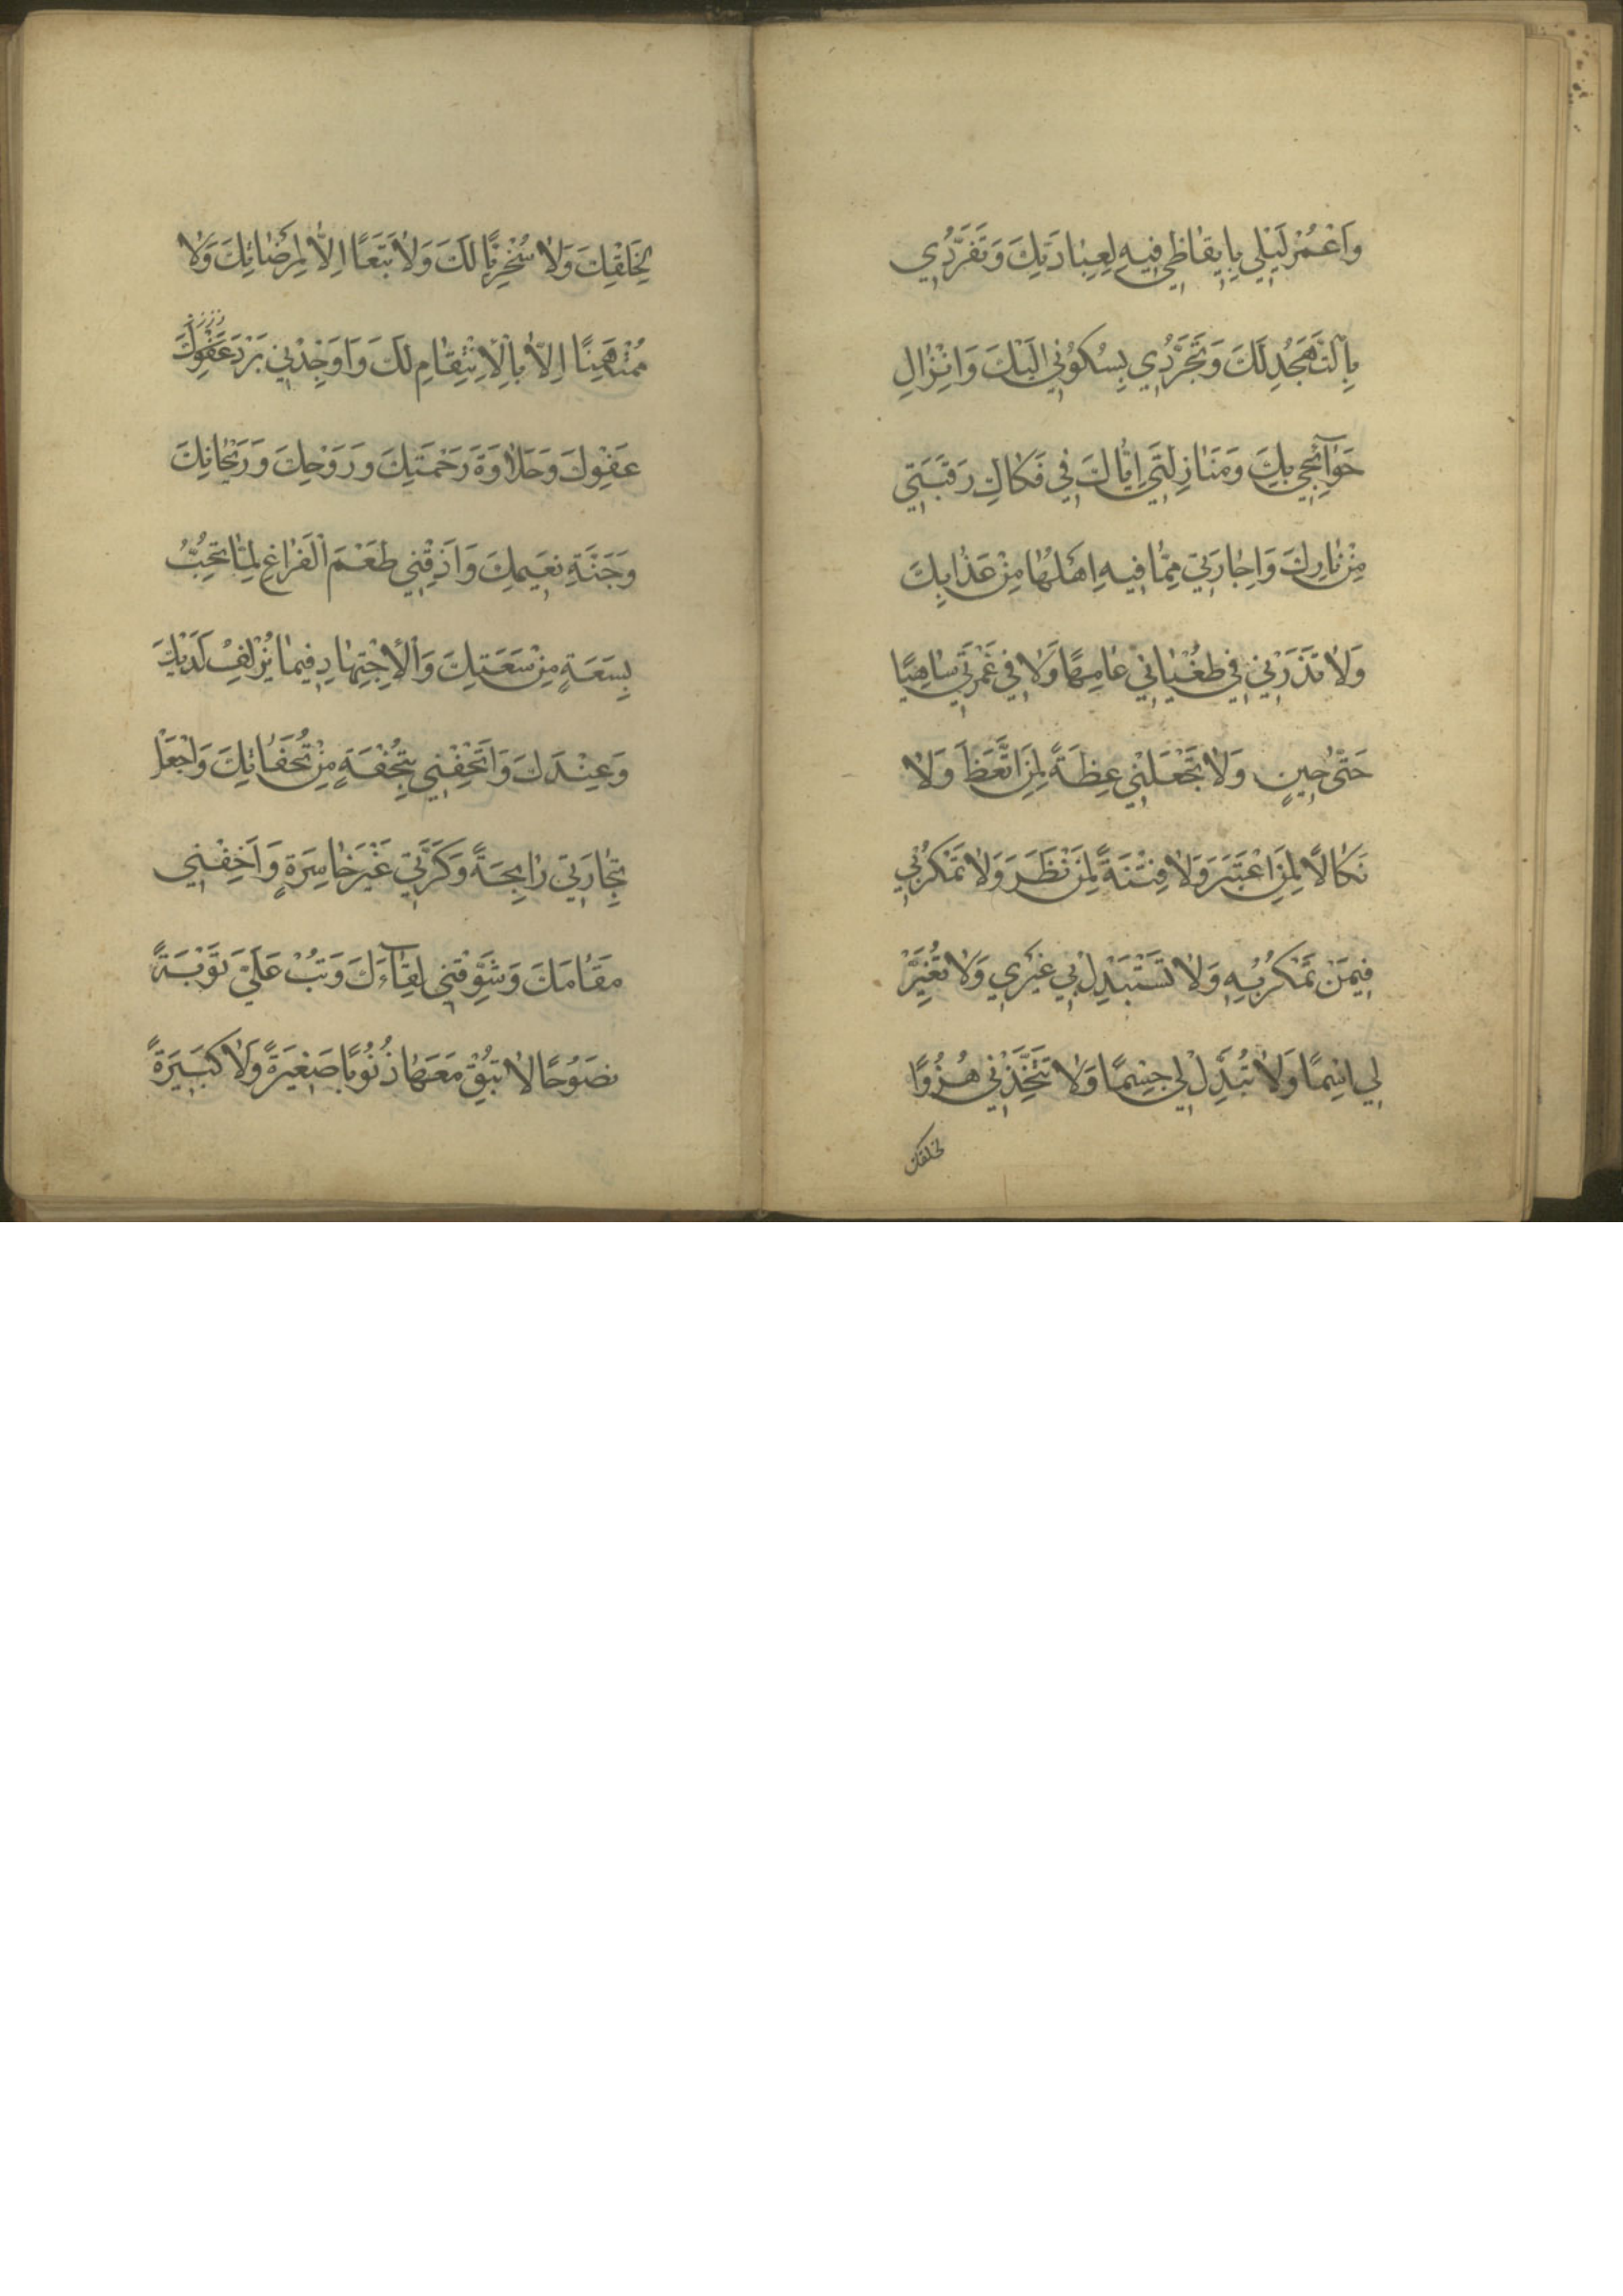 وَاَعْمُرْ لَيْلِي بِاِيقَاظِي فِيهِ لِعِبَادَتِكَ وَتَفَرُّدِي
بِالتَّهَجُّدِ لَكَ وَتَجَرُّدِي بِسُكُونِي اِلَيْكَ وَاِنْزَالِ
حَوَآئِجِي بِكَ وَمُنَازِلَتِي اِيَّاكَ فِي فَكَاكِ رَقَبَتِي
مِنْ نَارِكَ وَاِجَارَتِي مِمَّا فِيهِ اَهْلُهَا مِنْ عَذَابِكَ
وَلَا تَذَرْنِي فِي طُغْيَانِي عَامِهًا وَلَا فِي غَمْرَتِي سَاهِيًا
حَتّٰى حِينٍ وَلَا تَجْعَلْنِي عِظَةً لِمَنِ اتَّعَظَ وَلَا
نَكَالًا لِمَنِ اعْتَبَرَ وَلَا فِتْنَةً لِمَنْ نَظَرَ وَلَا تَمْكُرْ بِي
فِيمَنْ تَمْكُرُ بِهِ وَلَا تَسْتَبْدِلْ بِي غَيْرِي وَلَا تُغَيِّرْ
لِي اِسْمًا وَلَا تُبَدِّلْ لِي جِسْمًا وَلَا تَتَّخِذْنِي هُزُوًا
لخلقك
لِخَلْقِكَ وَلَا سُخْرِيًّا لَكَ وَلَا تَبَعًا اِلَّا لِمَرْضَاتِكَ وَلَا
مُمْتَهَنًا اِلَّا بِالْاِنْتِقَامِ لَكَ وَاَوْجِدْنِي بَرْدَ عَفْوِكَ
عَفْوِكَ وَحَلَاوَةَ رَحْمَتِكَ وَرَوْحِكَ وَرَيْحَانِكَ
وَجَنَّةِ نَعِيمِكَ وَاَذِقْنِي طَعْمَ الْفَرَاغِ لِمَا تُحِبُّ
بِسَعَةٍ مِنْ سَعَتِكَ وَالْاِجْتِهَادِ فِيمَا يُزْلِفُ لَدَيْكَ
وَعِنْدَكَ وَاَتْحِفْنِي بِتُحْفَةٍ مِنْ تُحَفَاتِكَ وَاجْعَلْ
تِجَارَتِي رَابِحَةً وَكَرَّتِي غَيْرَ خَاسِرَةٍ وَاَخِفْنِي
مَقَامَكَ وَشَوِّقْنِي لِقَآءَكَ وَتُبْ عَلَيَّ تَوْبَةً
نَصُوحًا لَا تُبْقِ مَعَهَا ذُنُوبًا صَغِيرَةً وَلَا كَبِيرَةً